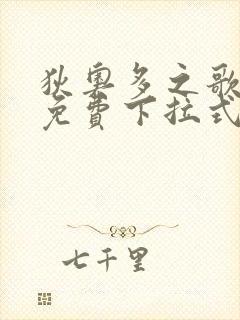 狄奧多之歌
免費下拉式
七千里